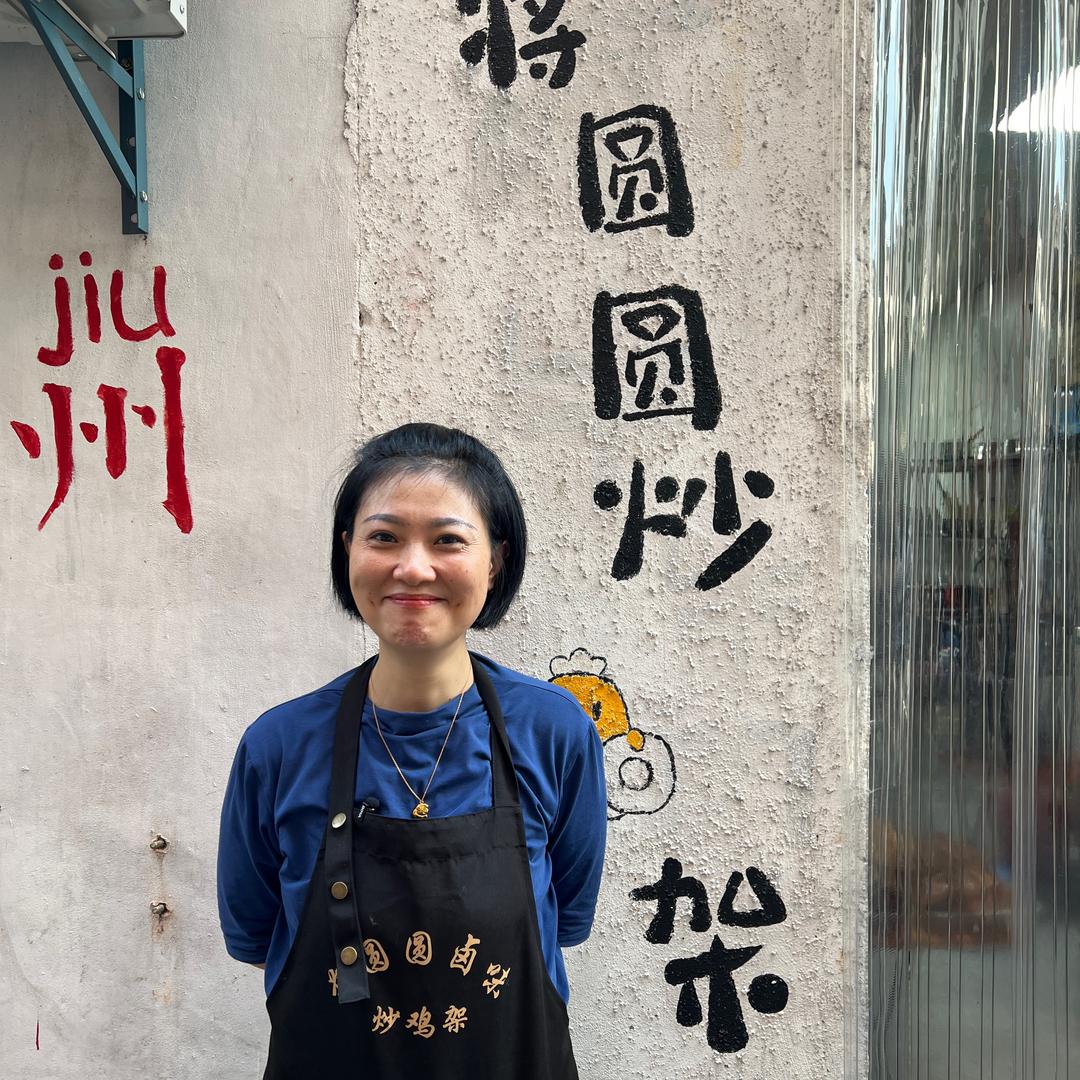 jiu
州
圆圆炒
架
圆圆卤味
炒鸡架